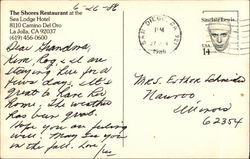 6-26-86
The Shores Restaurant at the
Sea Lodge Hotel
8110 Camino Del Oro
La Jolla, CA 92037
(619) 456-0600
SAN DIEGO, CA
PM
1986
Sinclair Lewis
USA
14
Dear Grandma,
Kim, Rog, & I are
staying here for a
few days. It's
great to have Rog
home. The weather
has been great.
Hope you are feeling
well. May see you
in the fall. Love,
Mrs. Esther Schmidt
Nauvoo
Illinois
62354